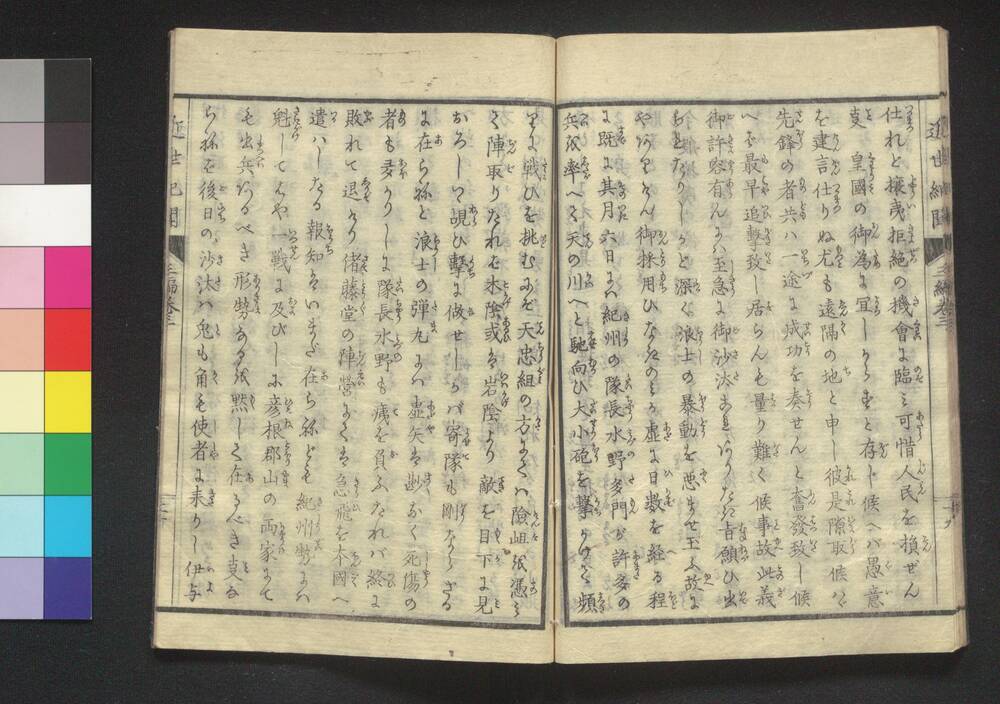 仕れど攘夷拒絶の機會に臨み可惜人民を損ぜん
支 皇國の御為に宜しからずと存じ候へバ愚意
を建言仕りぬ尤も遠隔の地と申し彼是隙取候ハゞ
先鋒の者共ハ一途に成功を奏せんと奮發致し候
へバ最早追撃致し居らんも量り難く候事故此義
御許容有んにハ至急に御沙汰あれかし旨願ひ出
深く浪士の暴動を悪ませ玉ふ故に
御採用ひなきのみか虚に日数を経る程
に既に其月六日にハ紀州の隊長水野多門が許多の
兵を率へて天の川へと馳向ひ大小砲を撃かけて頻
りに戦ひを挑むにぞ天忠組の方にてハ險岨を憑み
て陣取りたれバ木陰或ハ岩陰より敵を目下に見
おろして覘ひ撃に做せしかバ寄隊も剛ならざる
に在らねど浪士の弾丸にハ虚矢も尠なく死傷の
者も多かりしに隊長水野も痍を負ふたれバ終に
敗れて退けり偖藤堂の陣營にてハ急飛を本國へ
遣ハしたる報知ハいまだ在らねども紀州勢にハ
魁してはや一戦に及びしに彦根郡山の両家にて
も出兵あるべき形勢なるを黙して在るべき支な
らねバ後日の沙汰ハ兎も角も使者に来りし伊与
近世紀聞 三編巻三
近世紀聞 三編巻三